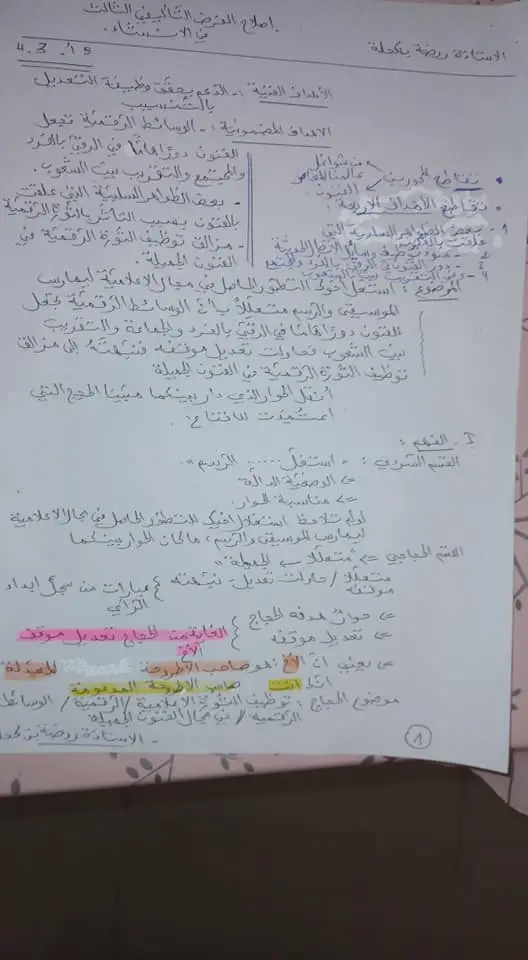 إصلاح الفرض التأليفي الثالث
في الإنشاء.
الأستاذة روضة بن كحلة
الأهداف الفنية: - الدعم يحقق وظيفة التعديل
بالتنسيب
الأهداف المضمونية: - الوسائط الرقمية تجعل
الفنون دورًا هامًّا في الرقيّ بالفرد
والمجتمع والتقريب بين الشعوب.
- بعض الظواهر السلبية التي علقت
بالفنون بسبب التأثر بالثورة الرقمية
- مزالق توظيف الثورة الرقمية في
الفنون الجميلة.
• تقاطع المحورين
الفنون.
• تقاطع الأهداف الأربعة:
1 - بعض الظواهر السلبية التي
علقت بالفنون
الموضوع: استغل أخوك التطور الحاصل في مجال الإعلامية ليمارس
الموسيقى والرسم متعللا بأنّ الوسائط الرقمية تجعل
للفنون دورًا هامًا في الرقيّ بالفرد والجماعة والتقريب
بين الشعوب فحاولت تعديل موقفه فنبّهته إلى مزالق
توظيف الثورة الرقمية في الفنون الجميلة.
أنقل الحوار الذي دار بينكما مبيّنا الحجج التي
اعتمدت للإقناع.
I - الفهم:
القسم السردي: "استغل ...... الرسم".
<= الوضعية الدالة
<= مناسبة الحوار
لو لم تلاحظ استغلال أخيك التطور الحاصل في مجال الإعلامية
ليمارس الموسيقى والرسم، ما كان الحوار بينكما
القسم الحجاجي <= "متعللا ← الجميلة"
متعللا / حاولت تعديل موقفه / نبّهته } عبارات من سجل إبداء الرأي
<= حوار هدفه الحجاج
<= تعديل موقفه
} الغاية من الحجاج تعديل موقف الأخ
<= يعني أنّ الأخ: هو صاحب الأطروحة المعدّلة
أنت صاحب الأطروحة المدعومة
موضوع الحجاج: توظيف الثورة الإعلامية / الرقمية / الوسائط
الرقمية / في مجال الفنون الجميلة.
1
- الأستاذة روضة بن كحلة